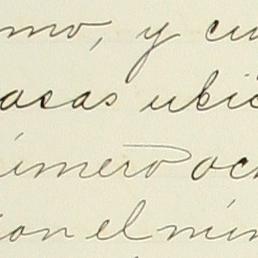 mo, y cu
casas ubic
úmero oc
con el núm